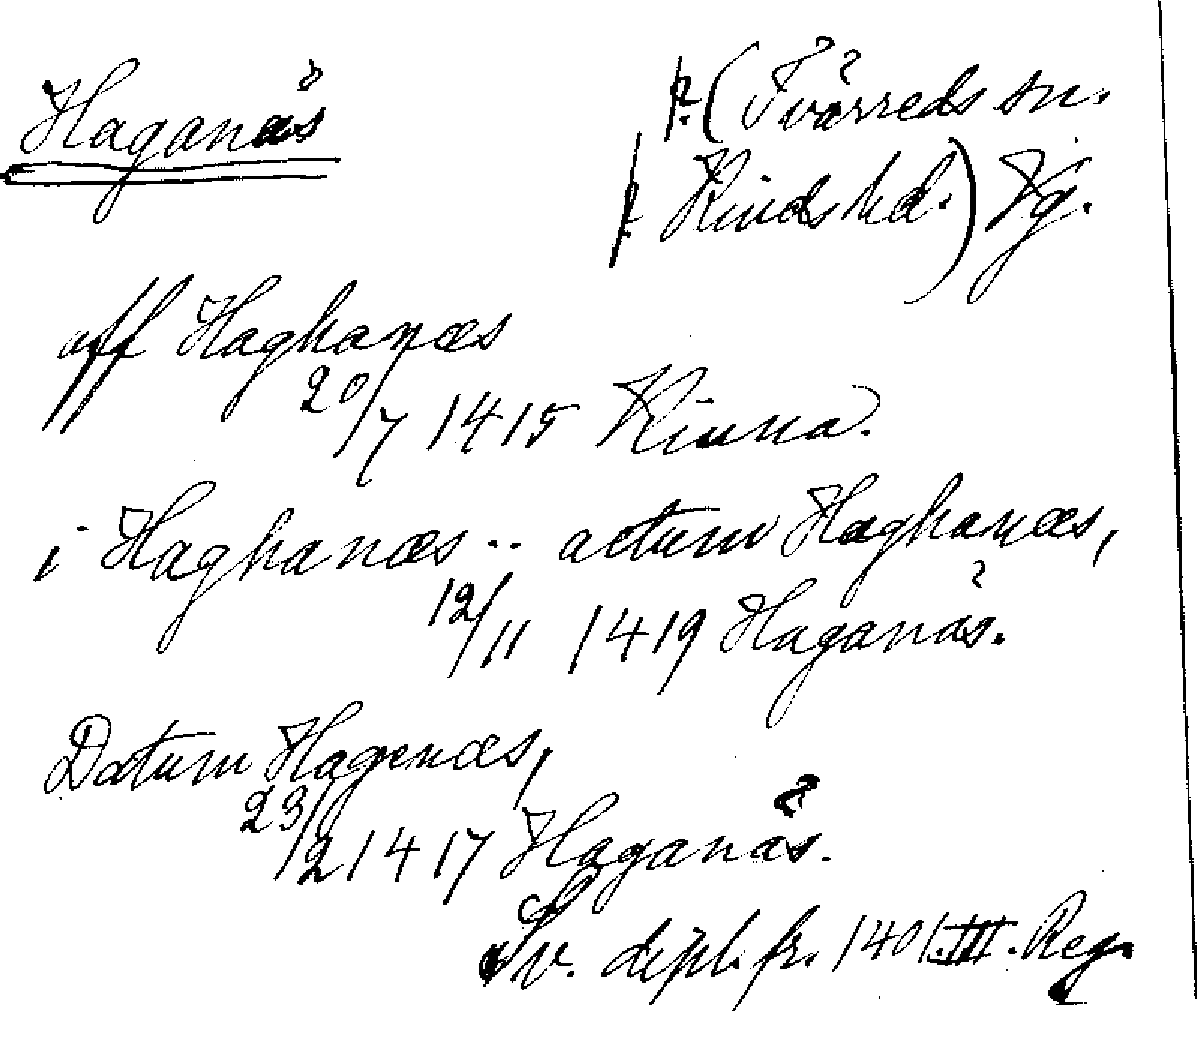 Haganäs
?(Tvärreds sn.
? Kinds hd.) Vg.
aff Haghanæs
20/7 1415 Kinna.
i Haghanæs .. actum Haghanæs,
12/11 1419 Haganäs.
Datum Hagenæs,
23/2 1417 Haganäs.
Sv. dipl. fr. 1401. III. Reg.